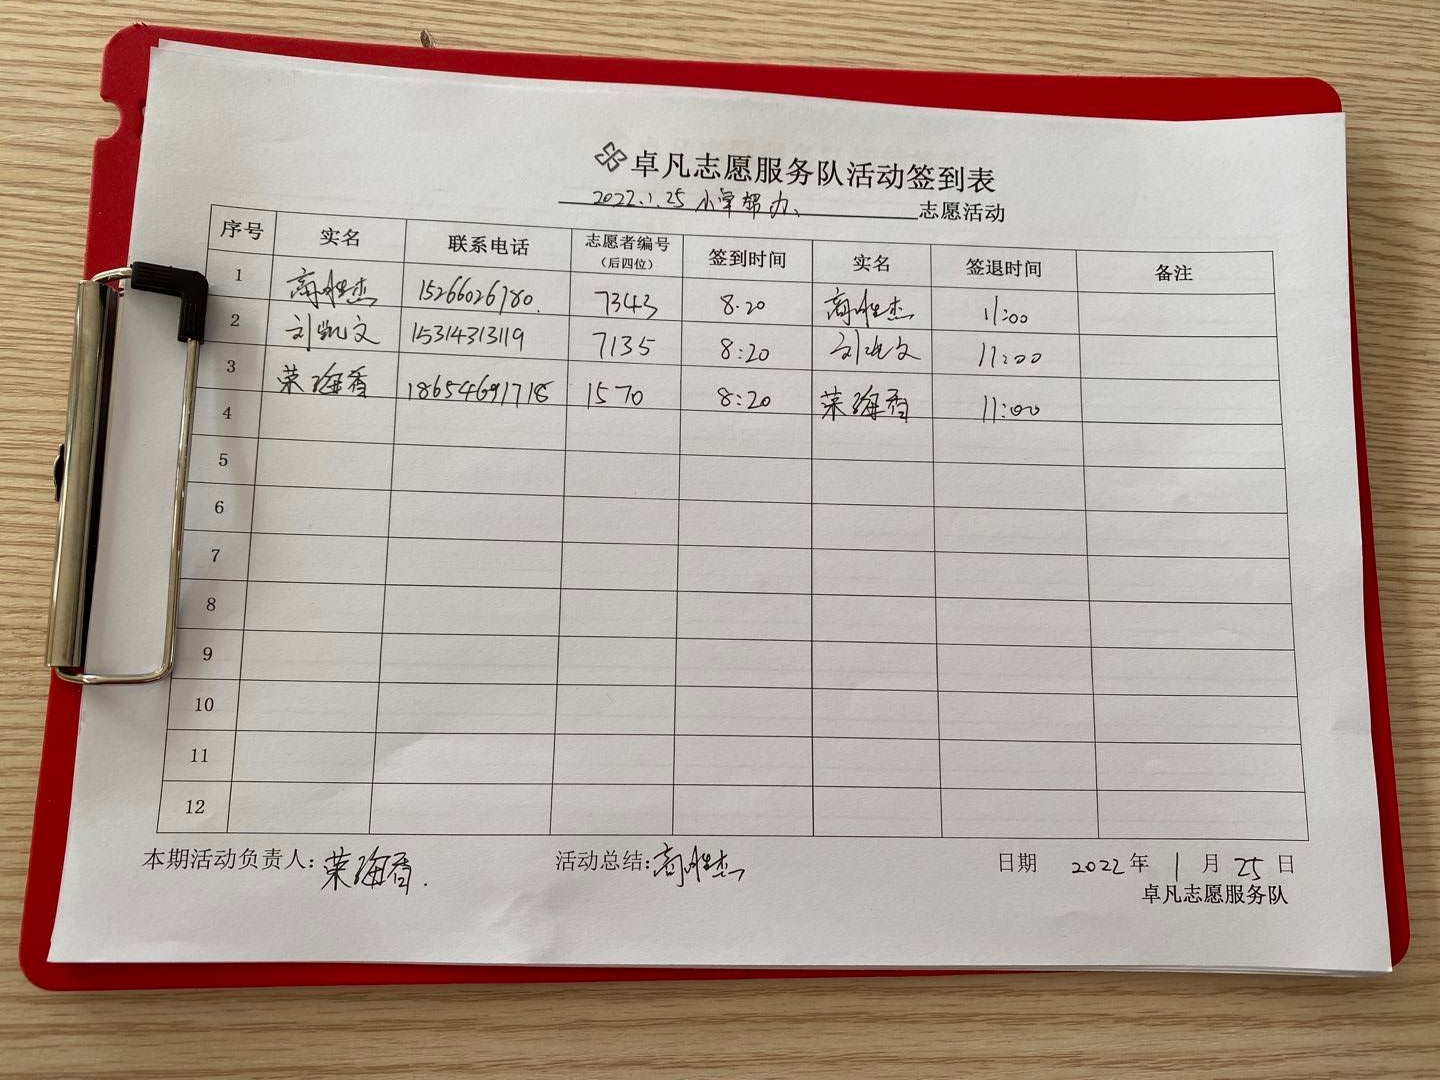 卓凡志愿服务队活动签到表
2022.1.25 小军帮办 志愿活动
序号 实名 联系电话 志愿者编号（后四位） 签到时间 实名 签退时间 备注
1 高胜杰 15266026780. 7343 8:20 高胜杰 11:00
2 刘凯文 15314313119 7135 8:20 刘凯文 11:00
3 荣海香 18654691718 1570 8:20 荣海香 11:00
4
5
6
7
8
9
10
11
12
本期活动负责人: 荣海香. 活动总结: 高胜杰 日期 2022 年 1 月 25 日
卓凡志愿服务队